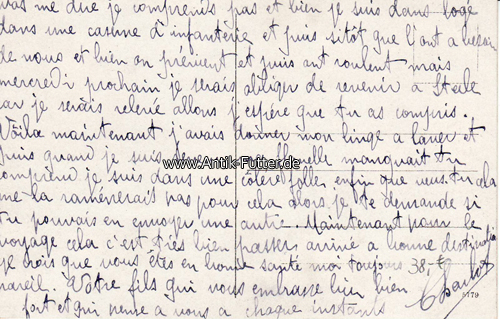 vas me due je comprends pas et bien je suis dans logé
dans une caserne d'infanterie et puis sitôt que l'ont a besoin
de nous et bien on prévient et puis ont roulent mais
mercredi prochain je serais obliger de revenir à Steele
car je serais relevé allons j'espère que tu as compris.
Voila maintenant j'avais donner mon linge a laver et
puis quand je suis flanelle manquait tu
comprend je suis dans une colère folle, enfin que veus tu cela
me la ramènerais pas pour cela alors je te demande si
tu pouvais en envoyer une autre. Maintenant pour le
voyage cela c'est très bien passer arrivé a bonne destination
je crois que vous êtes en bonne santé moi toujours
pareil. Votre fils qui vous embrasse bien bien
fort et qui pense a vous a chaque instants
Charlot
www.Antik-Futter.de
38,-€
5179